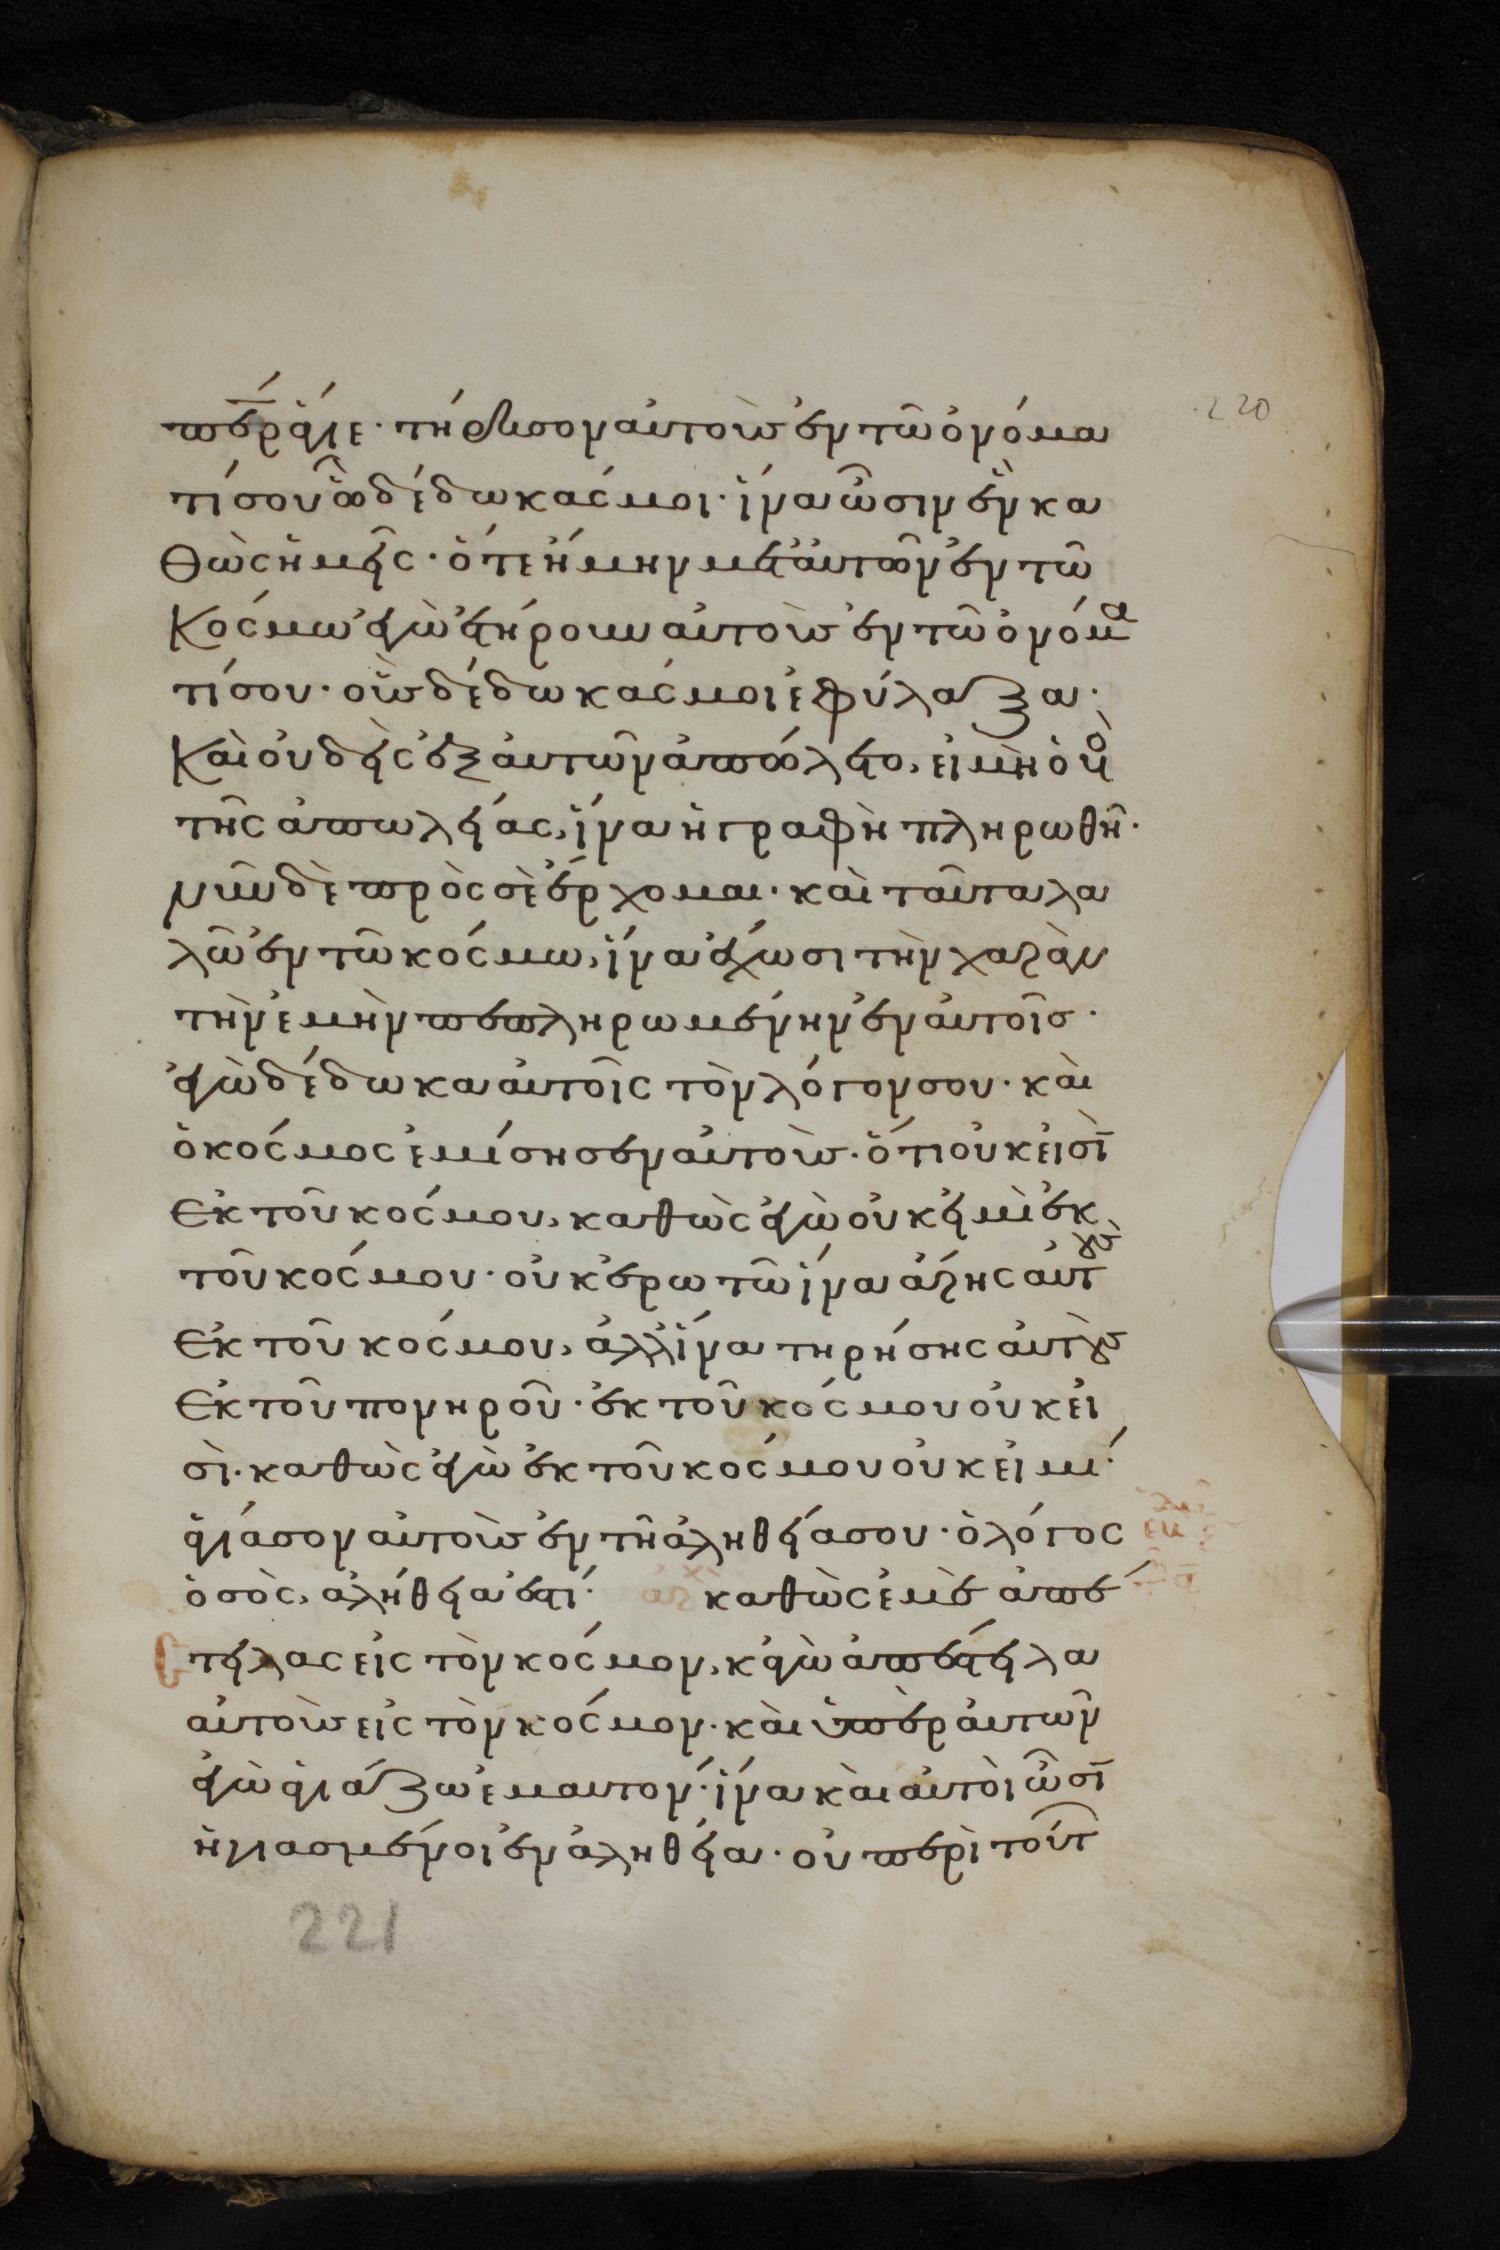 220
περ ἅγιε· τήρησον αὐτοὺς ἐν τῶ ὀνόμα
τί σου ὧ δέδωκάς μοι· ἵνα ὦσιν ἓν κα
θὼς ἡμεῖς· ὅτε ἤμην μετ' αὐτῶν ἐν τῶ
κόσμω ἐγὼ ἐτήρουν αὐτοὺς ἐν τῶ ὀνόμα
τί σου· οὓς δέδωκάς μοι ἐφύλαξα·
Καὶ οὐδεὶς ἐξ αὐτῶν ἀπώλετο, εἰ μὴ ὁ υἱὸ
τῆς ἀπωλείας, ἵνα ἡ γραφὴ πληρωθῆ·
νῦν δὲ πρὸς σὲ ἔρχομαι· καὶ ταῦτα λα
λῶ ἐν τῶ κόσμω, ἵνα ἔχωσι τὴν χαρὰν
τὴν ἐμὴν πεπληρωμένην ἐν αὐτοῖς·
ἐγὼ δέδωκα αὐτοῖς τὸν λόγον σου· καὶ
ὁ κόσμος ἐμίσησεν αὐτοὺς· ὅτι οὐκ εἰσὶ
Ἐκ τοῦ κόσμου, καθὼς ἐγὼ οὐκ εἰμὶ ἐκ
τοῦ κόσμου· οὐκ ἐρωτῶ ἵνα ἄρης αὐτοὺς
Ἐκ τοῦ κόσμου, ἀλλ' ἵνα τηρήσης αὐτοὺς
Ἐκ τοῦ πονηροῦ· ἐκ τοῦ κόσμου οὐκ εἰ
σὶ· καθὼς ἐγὼ ἐκ τοῦ κόσμου οὐκ εἰμί·
ἁγίασον αὐτοὺς ἐν τῆ ἀληθείᾳ σου· ὁ λόγος
ὁ σὸς, ἀλήθειά ἐστι· καθὼς ἐμὲ ἀπέ
στειλας εἰς τὸν κόσμον, κἀγὼ ἀπέστειλα
αὐτοὺς εἰς τὸν κόσμον· καὶ ὑπὲρ αὐτῶν
ἐγὼ ἁγιάζω ἐμαυτόν· ἵνα καὶ αὐτοὶ ὦσι
ἡγιασμένοι ἐν ἀληθεία· οὐ περὶ τούτ
221